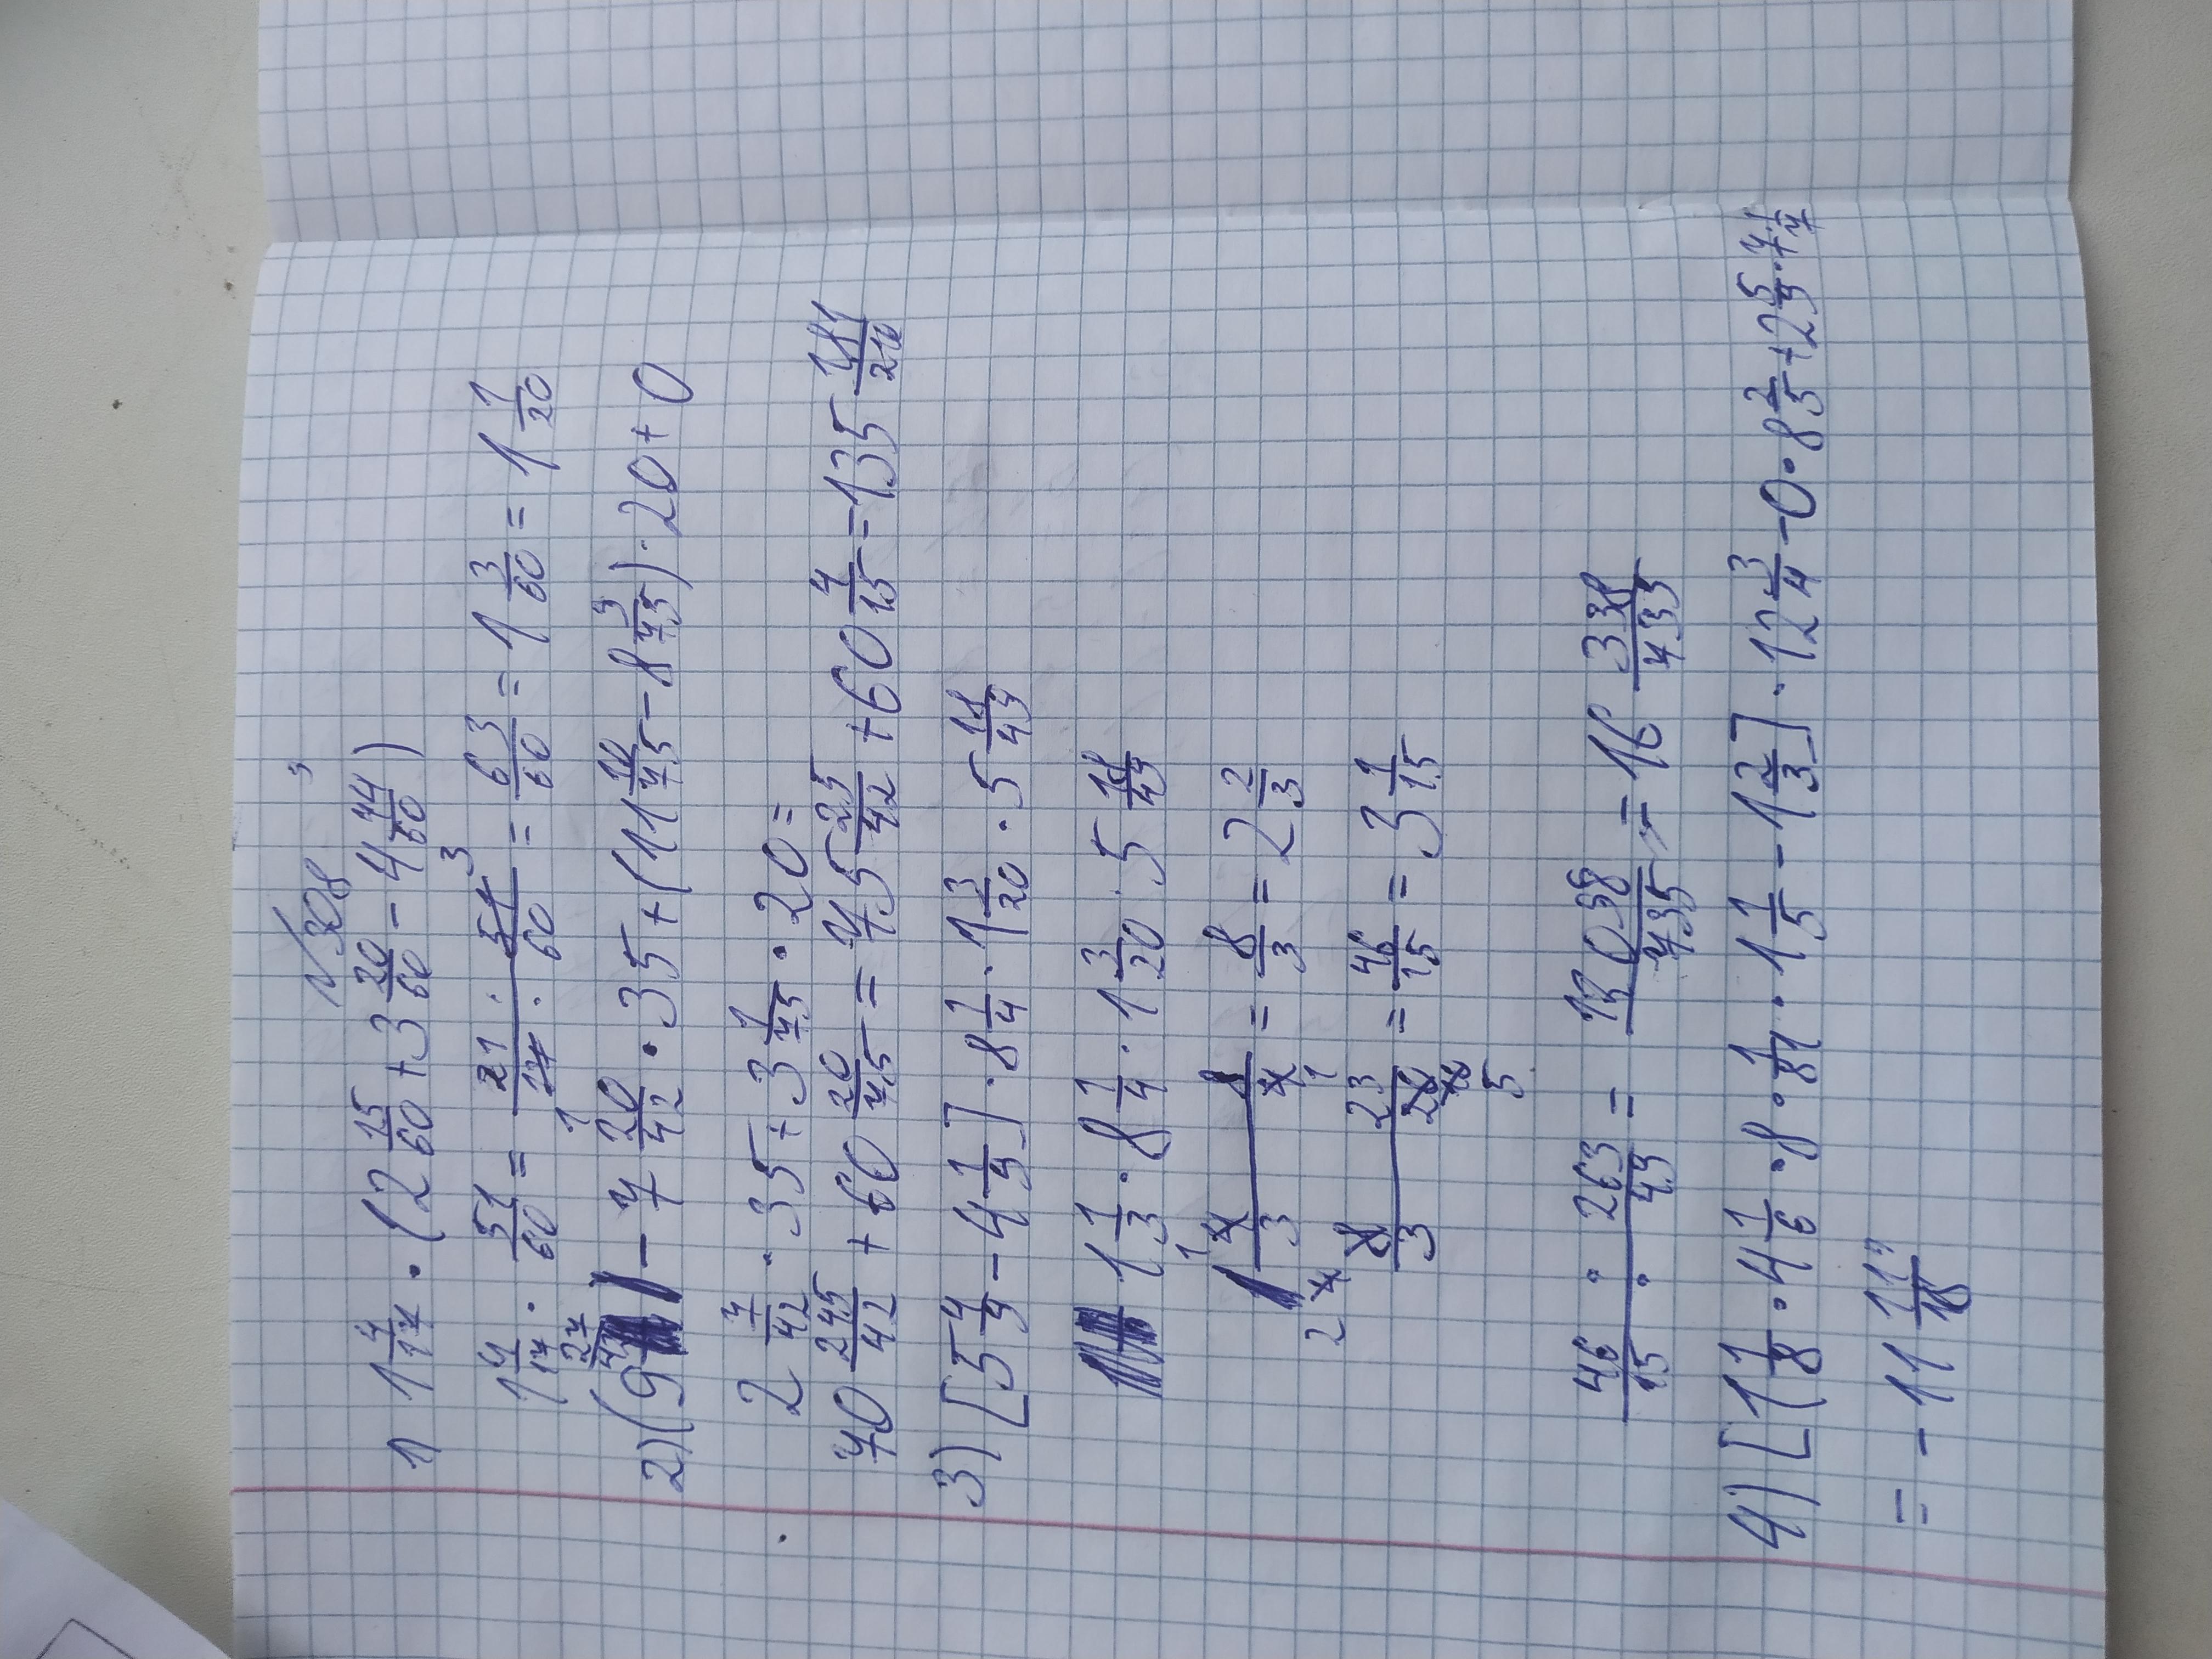 №308
1) 1 4/17 · (2 15/60 + 3 20/60 - 4 44/60)
1 4/17 · 51/60 = 21 · 51 3/17 · 60 = 63/60 = 1 3/60 = 1 1/20
1
2) (9 27/42 - 7 20/42 · 35 + (11 10/75 - 8 9/75) · 20 + 0
2 7/42 · 35 + 3 1/75 · 20 =
70 245/42 + 60 20/75 = 75 25/42 + 60 4/15 = 135 181/210
3) [5 4/9 - 4 1/9] · 8 1/4 · 1 3/20 · 5 18/49
1 1/3 · 8 1/4 · 1 3/20 · 5 18/49
1 4/3 8/4 1 = 8/3 = 2 2/3
2 4 8/3 23/20 10 5 = 46/15 = 3 1/15
46 · 263/15 · 49 = 12098/735 = 16 338/735
4) [1 1/8 · 4 1/6 · 8 · 1/81 · 1 1/5 - 1 2/3] · 12 3/4 - 0 · 8 2/5 + 2 5/9 · 4 1/4
= - 11 11/18